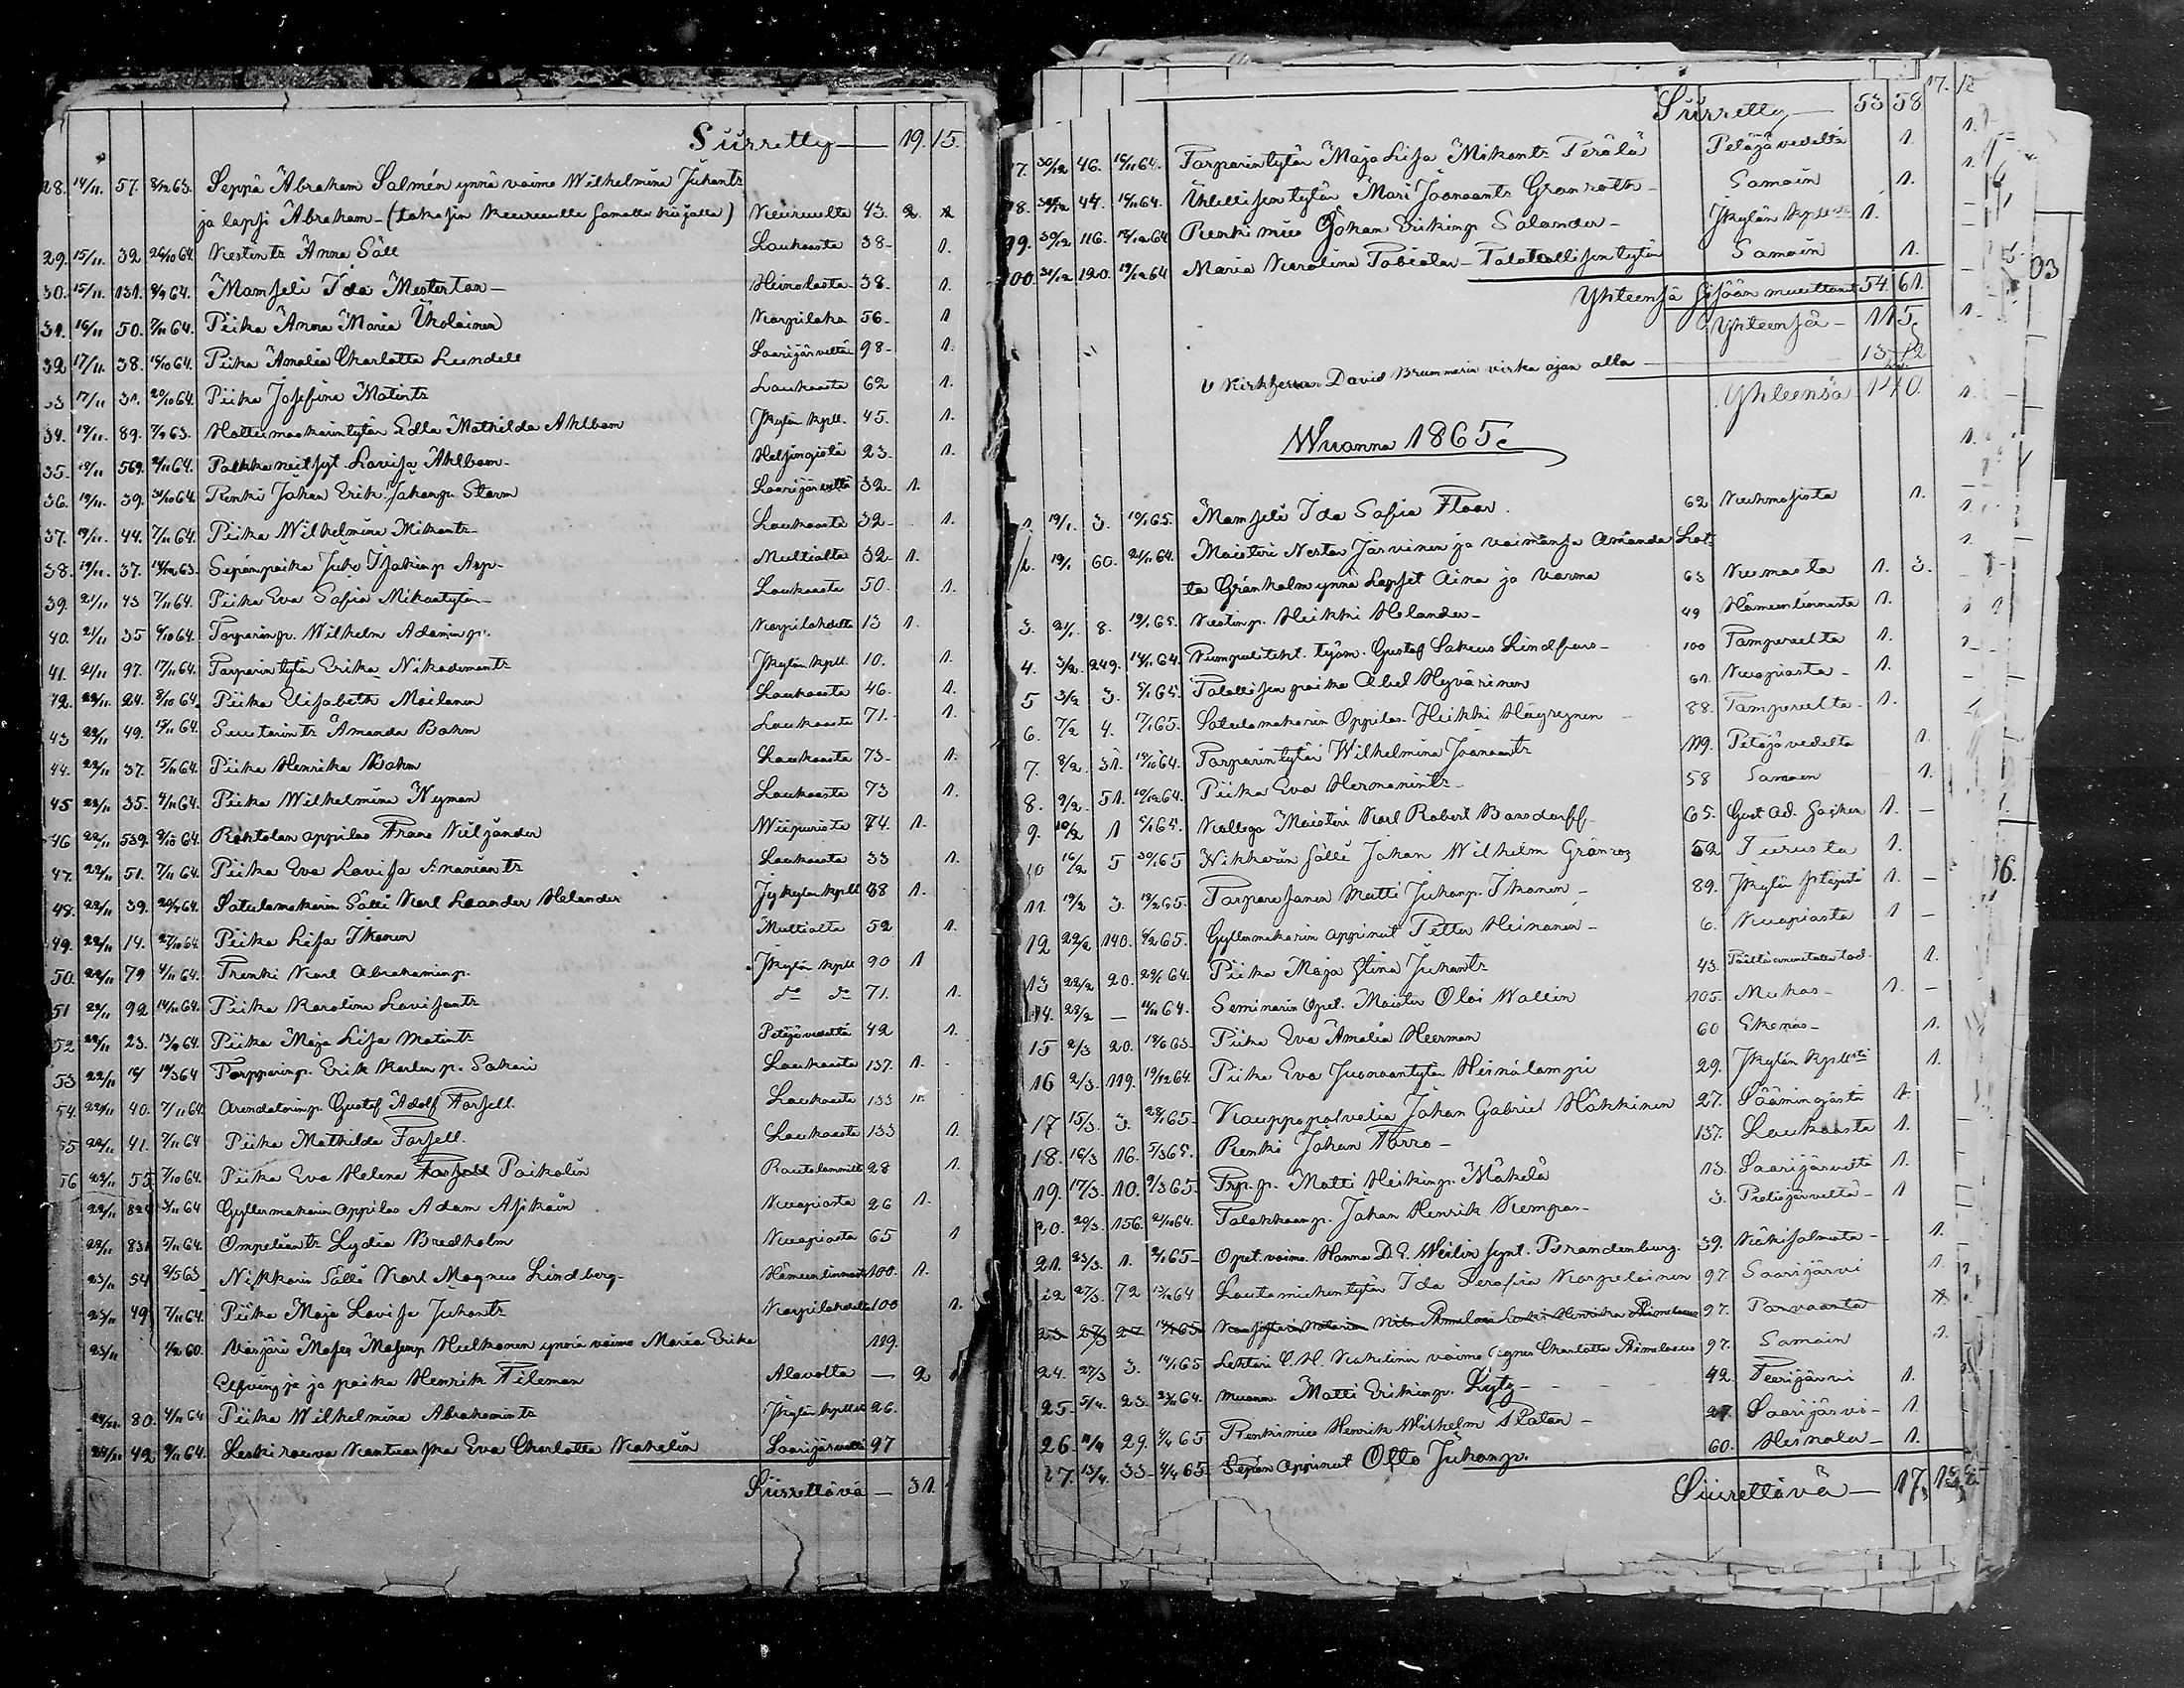 Siirretty — 19. 15.
28. 14/11. 57. 8/12 63. Seppä Abraham Salmén ynnä vaimo Wilhelmina Juhantr
ja lapsi Abraham – (takasin Keuruulle samalla kirjalla) Keuruulta 43. 2. 2
29. 15/11. 32 26/10 64. Kestintr Anna Säll Laukaasta 38– 1.
30. 15/11. 131. 8/9 64. Mamseli Ida Mesterton – Heinolasta 38– 1.
31. 16/11 50. 7/11 64. Piika Anna Maria Ukolainen Korpilaka 56– 1
32 17/11. 38. 15/10 64. Piika Amalia Charlotta Lundell Saarijärveltä 98– 1.
33 17/11 31. 20/10 64. Piika Josefina Matintr Laukaasta 62 1.
34. 19/11. 89. 7/9 63. Hattumaakarintytär Edla Mathilda Ahlbom Jkylän kpll. 45. 1.
35. 19/11 569. 2/11 64. Palkkaneitsyt Lovisa Ahlbom– Helsingistä 23– 1.
36. 19/11. 39. 31/10 64. Renki Johan Erik Johanp. Storm Saarijärveltä 32– 1.
37. 19/11. 44. 7/11 64. Piika Wilhelmina Mikontr– Laukaasta 32– 1.
38. 19/11. 37. 14/12 63. Sepänpoika Juho Isakinp Asp– Multialta 32– 1.
39. 21/11 43 7/11 64. Piika Eva Sofia Mikontytär– Laukaasta 50. 1.
40. 21/11 35 6/10 64. Torparinp. Wilhelm Adaminp. Korpilahdelta 13 1.
41. 21/11 97. 17/11 64. Torparin tytär Erika Nikodemantr Jkylän kpll. 10. 1.
42. 22/11. 24. 8/10 64. Piika Elisabeth Moilanen Laukaasta 46. 1.
43 22/11 49. 15/11 64. Suutarintr Amanda Bohm Laukaasta 71. 1.
44. 22/11 37. 5/11 64. Piika Henrika Bohm Laukaasta 73– 1.
45 22/11 35. 4/11 64. Piika Wilhelmina Nyman Laukaasta 73 1.
46 22/11 539. 8/10 64. Rohtolan oppilas Frans Kiljander Wiipurista 74. 1.
47. 22/11 51. 7/11 64. Piika Eva Lovisa Ananiantr Laukaasta 33 1.
48. 22/11 39. 20/9 64. Satulamakarin Sälli Karl Leander Helander Jyskylän kpll 98 1.
49. 22/11 14. 27/10 64. Piika Lisa Ikonen Multialta 52 1.
50. 22/11 79 4/11 64. Trenki Karl Abrahaminp. Jkylän kpll 90 1
51 22/11 92 14/11 64. Piika Karolina Lovisantr do do 71. 1.
52 22/11 23. 13/11 64. Piika Maja Lisa Matintr Petäjävedeltä 42 1.
53 22/11 16/ 19/3 64 Torpparinp. Erik Karlen p. Sakari Laukaasta 137. 1.
54. 22/11 40. 7/11 64. Arendatorinp. Gustaf Adolf Forsell. Laukaasta 133 1.
55 22/11 41. 7/11 64 Piika Mathilda Forsell. Laukaasta 133 1.
56 22/11 55 7/10 64. Piika Eva Helena Forsell Poikolin Rautalammilta 28 1.
22/11 824 3/11 64 Gyllermakarin oppilas Adam Asikain Kuopiosta 26 1.
22/11 831 5/11 64. Ompeliantr Lydia Bredholm Kuopiosta 65 1
23/11 54 8/5 63 Nikkarin Sälli Karl Magnus Lindberg– Hämeenlinnasta 100. 1.
23/11 49 7/11 64. Piika Maja Lovisa Juhantr Korpilahdelta 100 1.
23/11 1/2 60. Värjäri Moses Mosenp Hulkonen ynnä vaimo Maria Erika 119.
Elfving ja ja poika Henrik Fileman Alavolta — 2 1
24/11. 80. 4/11 64 Piika Wilhelmina Abrahamintr Jkylän kpllst 26.
24/11 42 9/11 64. Leski rouva Kantuarska Eva Charlotta Kahelin Saarijärveltä 97
Siirrettävä — 31.
17. 12
Siirretty — 53 58
97. 30/12 46. 16/11 64. Torparintytär Maja Lisa Mikontr Perälä Petäjävedeltä 1.
98. 30/12 44. 15/11 64. Itsellisentytär Mari Joonaantr Granroth– Samoin 1.
99. 30/12 116. 18/12 64 Renkimies Johan Erikinp Salander– Jkylän kpllsta 1.
100. 31/12 120. 19/12 64 Maria Karolina Tobiatar– Talollisentytär Samoin 1.
Yhteensä sisään muuttanut 54. 61.
Yhteensä – 115.
V Kirkherran David Brummerin virka ajan alla — 13–12
Yhteensä 140.
Wuonna 1865.
1. 19/1. 3. 19/1 65. Mamseli Ida Sofia Floor. 62 Kuhmosista 1.
2. 19/1 60. 21/11 64. Maisteri Nestor Järvinen ja vaimonsa Amanda Lot=
ta Gränholm ynnä lapset Aina ja Varma 63 Kuusta 1. 3.
3. 21/1. 8. 19/1 65. Kestinp. Heikki Helander– 49 Hämeenlinnasta 1.
4. 3/2. 249. 14/11 64. Pumpulitekt. työm. Gustaf Sakeus Lindfors– 100 Tampereelta 1.
5 3/2 3. 5/1 65. Talollisen poika Abel Hyvärinen 61. Kuopiosta– 1.
6. 7/2 4. 17/1 65. Satulamakarin Oppilas Heikki Häyrynen – 88. Tampereelta– 1.
7. 8/2. 31. 19/10 64. Torparintytär Wilhelmina Joonaantr 119. Petäjävedeltä 1.
8. 9/2. 51. 10/12 64. Piika Eva Hermanintr– 58 Samoin 1.
9. 10/2 1 5/1 65. Kollega Maisteri Karl Robert Bonsdorff– 65. Gust ad. Sackn 1. –
10 16/2 5 30/1 65 Nikkarin sälli Johan Wilhelm Grönros 52 Turusta 1.
11. 19/2 3. 19/2 65. Torpare sonen Matti Juhonp. Ikonen – 89. Jkylän 1. –
12 22/2 140. 8/2 65. Gyllermakarin oppinut Petter Heinonen– 6. Kuopiosta 1 –
13 22/2 20. 29/11 64. Piika Maja Stina Juhantr 43. 1.
14. 28/2 — 11/11 64. Seminarin Opet. Maister Olai Wallin 105. Muhos– 1. –
15 2/3 20. 19/6 63– Piika Eva Amalia Heerman 60 Ekenäs– 1.
16 2/3. 119. 19/12 64. Piika Eva Juonaantytär Heinälampi 29. Jkylän kpllsta 1.
17 15/3. 3. 28/1 65. Kauppapalvelia Johan Gabriel Häkkinen 27. Sääminjästä 1.
18. 16/3 16. 5/3 65. Renki Johan Porro – 137. Laukaasta 1.
19. 17/3. 10. 9/3 65. Trp.p. Matti Heikinp. Mäkelä 13. Saarijärveltä 1.
20. 20/3. 156. 21/10 64. Talokkaanp. Johan Henrik Kempas– 3. Pielisjärveltä– 1
21. 23/3. 1. 2/1 65– Opet. vaimo Hanna D. E. Weilin synt. Brandenburg. 39. Käkisalmesta– 1.
22 27/3. 72 13/12 64 Lautamiehentytär Ida Serafia Karpelainen 97 Saarijärvi 1.
23 27/3 27 97. Porvoosta 1.
24. 27/3 3. 14/1 65 Lehtori C. H. Kahelinin vaimo Agnes Charlotta Rimelaeus 97. Samoin 1.
25– 5/4. 23. 23/11 64. Muonm Matti Erikinp. Lyty– 42. Teerijärvi 1.
26. 11/4 29. 4/4 65 Renkimies Henrik Wilhelm Platan – 27. Saarijärvi– 1.
27. 13/4. 33– 4/4 65– Sepän oppinut Otto Juhanp. 60. Heinola– 1.
Siirrettävä — 17,